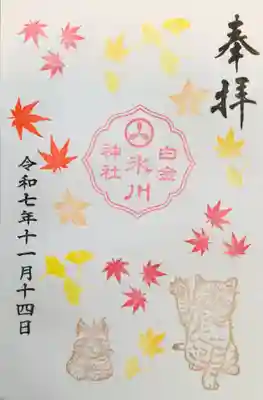 奉拝
白金
氷川
神社
令和七年十一月十四日